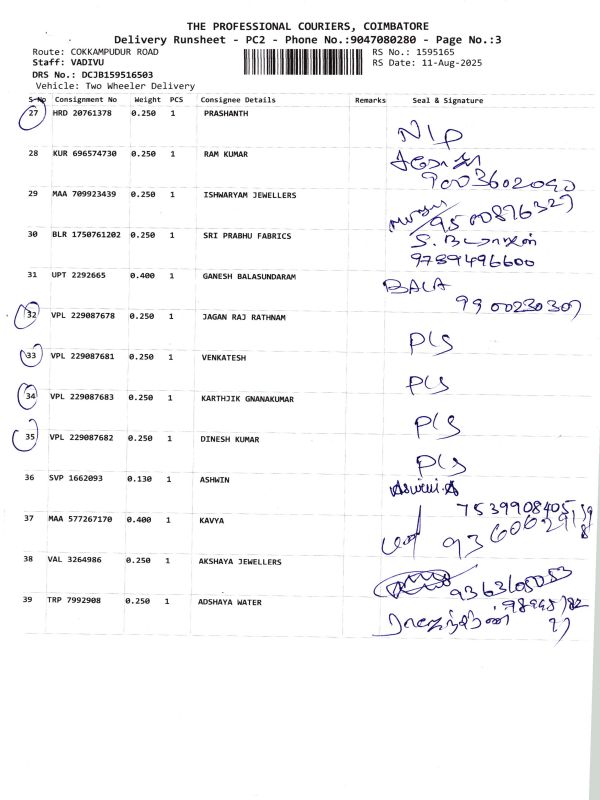 THE PROFESSIONAL COURIERS, COIMBATORE
Delivery Runsheet - PC2 - Phone No.:9047080280 - Page No.:3
Route: COKKAMPUDUR ROAD RS No.: 1595165
Staff: VADIVU RS Date: 11-Aug-2025
DRS No.: DCJB159516503
Vehicle: Two Wheeler Delivery
S-No Consignment No Weight PCS Consignee Details Remarks Seal & Signature
27 HRD 20761378 0.250 1 PRASHANTH
N/P
28 KUR 696574730 0.250 1 RAM KUMAR
9003602090
29 MAA 709923439 0.250 1 ISHWARYAM JEWELLERS
9500876327
30 BLR 1750761202 0.250 1 SRI PRABHU FABRICS
9789496600
31 UPT 2292665 0.400 1 GANESH BALASUNDARAM BALA
9900230307
32 VPL 229087678 0.250 1 JAGAN RAJ RATHNAM
P/S
33 VPL 229087681 0.250 1 VENKATESH
P/S
34 VPL 229087683 0.250 1 KARTHJIK GNANAKUMAR
P/S
35 VPL 229087682 0.250 1 DINESH KUMAR
P/S
36 SVP 1662093 0.130 1 ASHWIN
7539908405
37 MAA 577267170 0.400 1 KAVYA
38 VAL 3264986 0.250 1 AKSHAYA JEWELLERS
39 TRP 7992908 0.250 1 ADSHAYA WATER